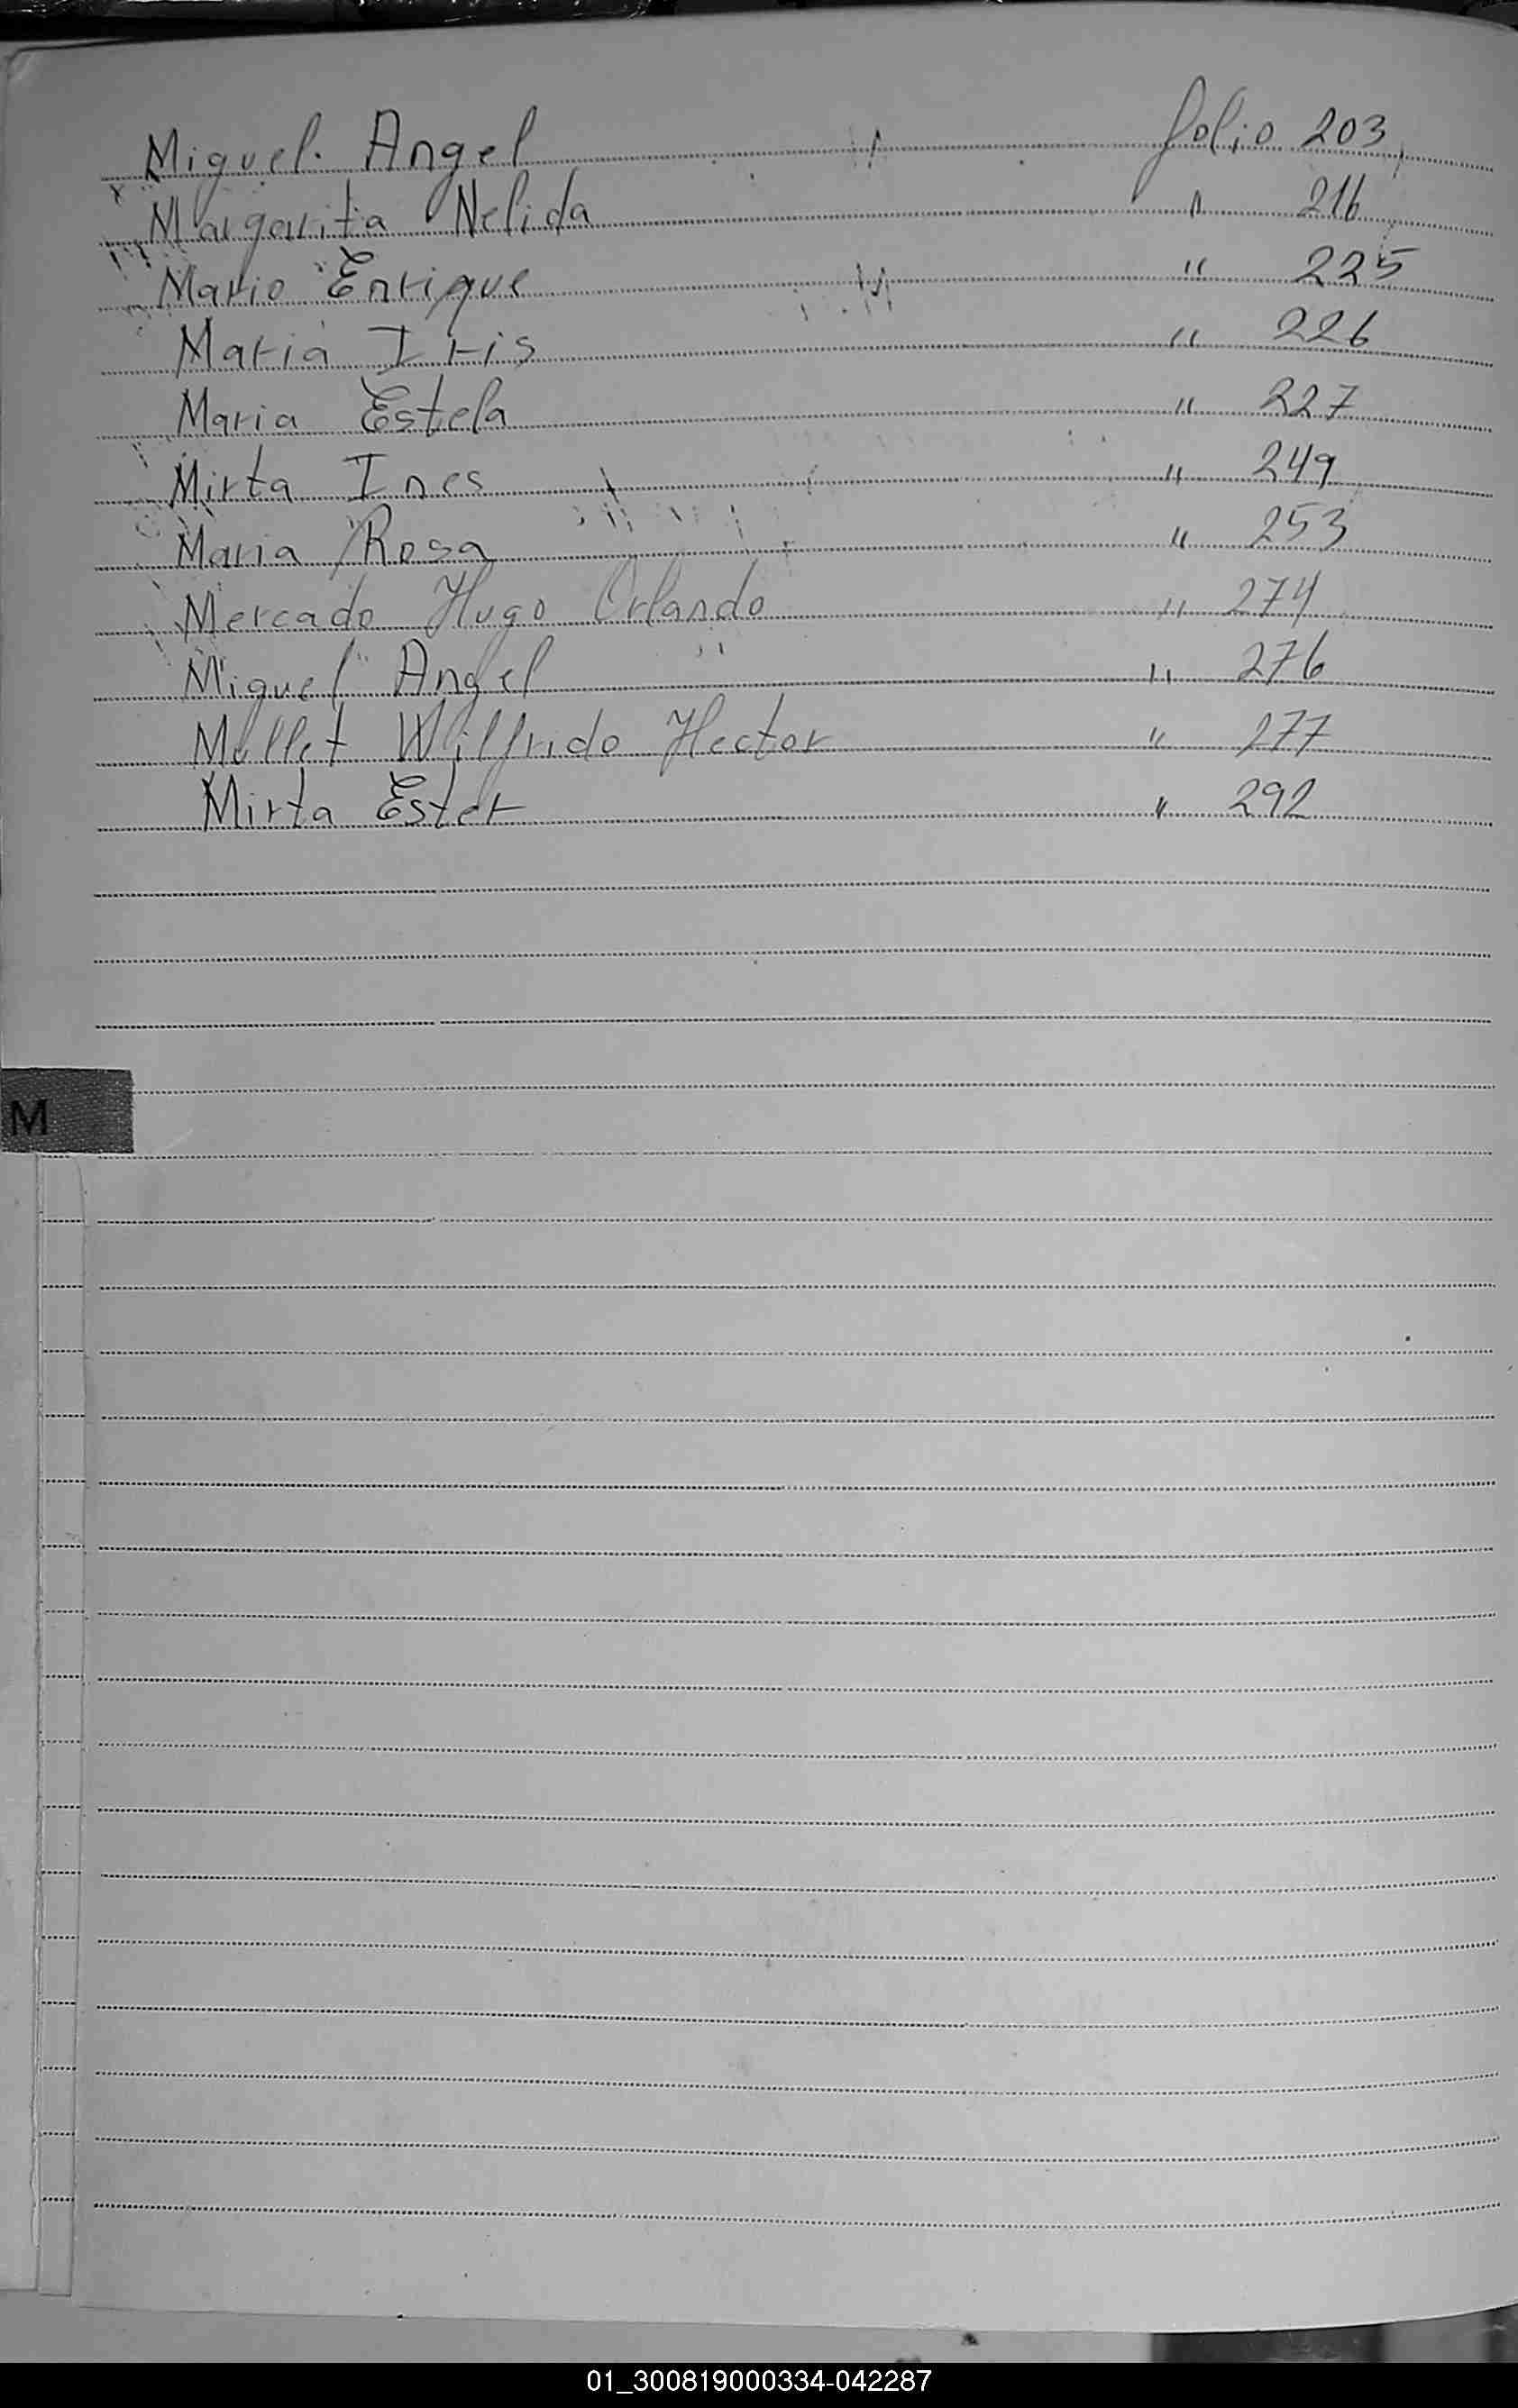 Miguel. Angel folio 203
Margarita Nelida " 216
Mario Enrique " 225
Maria Iris " 226
Maria Estela " 227
Mirta Ines " 249
Maria Rosa " 253
Mercado Hugo Orlando " 274
Miguel Angel " 276
Mollet Wilfrido Hector " 277
Mirta Ester " 292
M
01_300819000334-042287